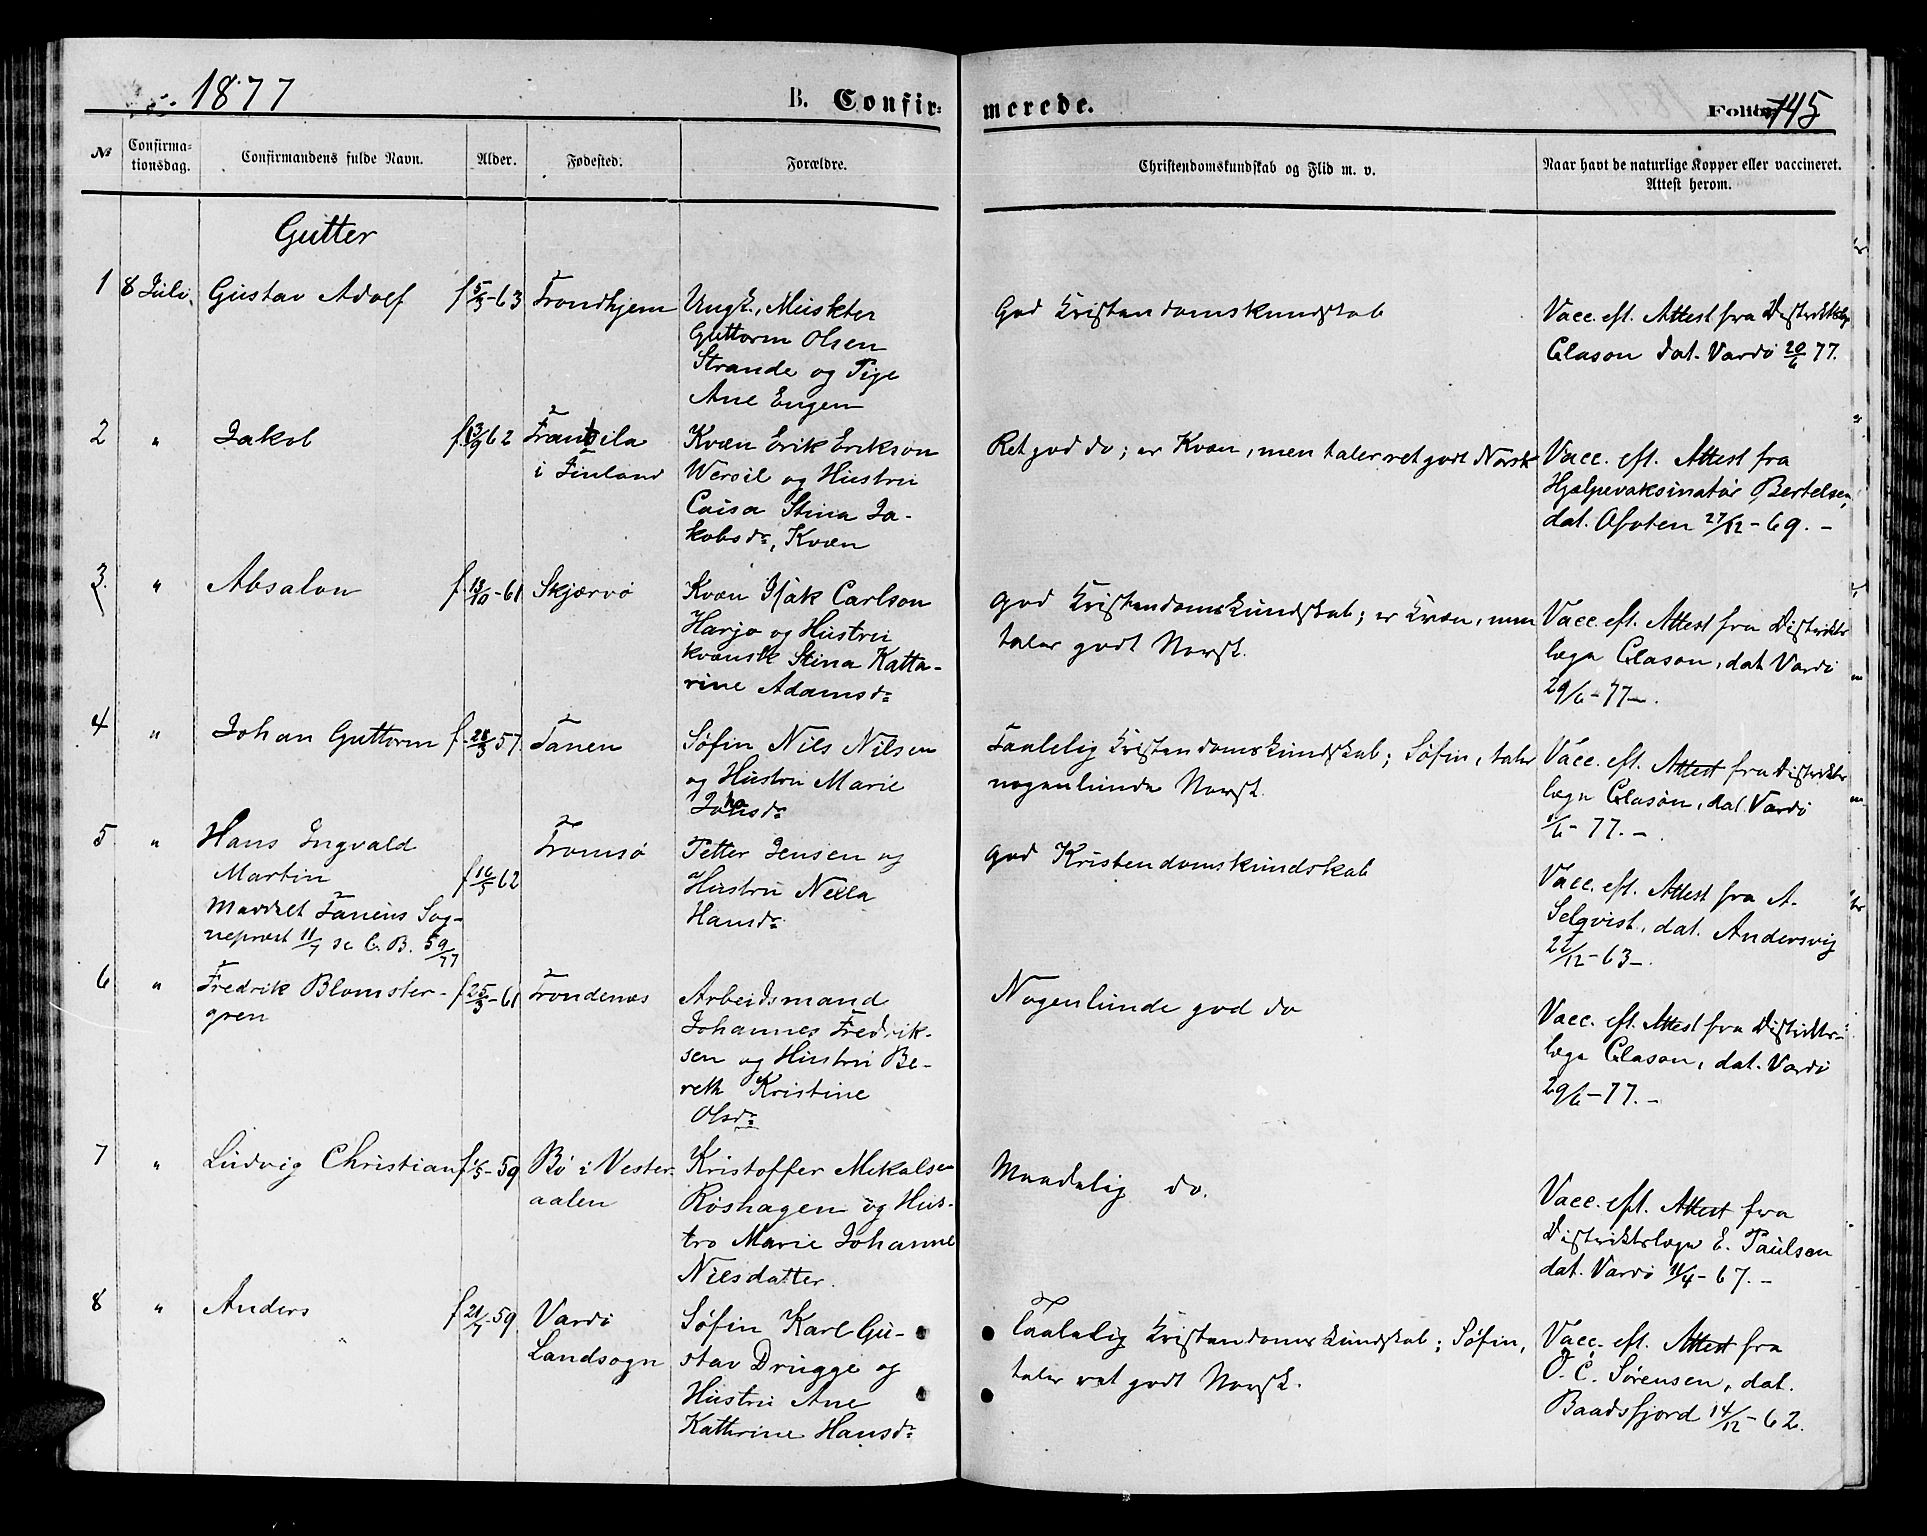 1877 B. Confir-
merede. Folio 145
No Confirma-
tionsdag. Confirmandens fulde Navn. Alder. Fødested. Forældre. Christendomskundskab og Flid m. v. Naar havt de naturlige Kopper eller vaccineret.
Attest herom.
Gutter
1 8 Juli. Gustav Adolf f 5/3-63 Trondhjem Ungk., Muskter God Kristendomskundskab Vacc. eft. Attest fra Distriktslæ
Guttorm Olsen Clason dat. Vardö 20/6 77.
Strande og Pige
Ane Engen
2 " Jakob f 13/9 62 Frantsila Kvæn Erik Erikson Ret god do; er Kvæn, men taler ret godt Norsk Vacc. eft. Attest fra
i Finland Wersil og Hustru Hjælpevaksinatör Bertelsen,
Caisa Stina Ja- dat. Ofoten 27/12-69.-
kobsdr, Kvæn
3. " Absalon f. 13/10-61 Skjærvö Kvæn Isak Carlson God Kristendomskundskab; er Kvæn, men Vacc. eft. Attest fra Distrikts
Harjo og Hustru taler godt Norsk. læge Clason, dat Vardö
kvænsk Stina Katta- 29/6-77-.
rine Adamsdr
4 " Johan Guttorm f. 28/3 57. Tanen Söfin Nils Nilsen Taalelig Kristendomskundskab; Söfin, taler Vacc. eft. Attest fra Distrikts
og Hustru Marie nogenlunde Norsk. læge Clason, dat Vardö
Johnsdr 1/6-77.-
5 " Hans Ingvald Tromsö Petter Jensen og God Kristendomskundskab
Martin f 16/5 62 Hustru Nella Vacc. eft. Attest fra A.
Meddelt Tanens Sog- Hansdr. Selqvist, dat. Andersvig
neprest 11/7 se C. B. 59/77 22/12-63-.
6 " Fredrik Blomster- f 25/3-61 Trondenæs Arbeidsmand Nogenlunde god do Vacc. eft. Attest fra Distrikts-
gren Johannes Fredrik- læge Clason, dat. Vardö
sen og Hustru Be- 29/6-77.-
reth Kristine
Olsdr
7 " Ludvig Christian f 1/5-59 Bö i Vester- Kristoffer Mikalsen Maadelig do. Vacc. eft. Attest fra
aalen Röshagen og Hus- Distriktslæge E. Paulsen
tro Marie Johanne dat. Vardö 11/4-67.-
Nilsdatter.
8 " Anders f 21/7-59 Vardö Söfin Karl Gu- Taalelig Kristendomskundskab; Söfin, Vacc. eft. Attest fra
Landsogn stav Drugge og taler ret godt Norsk. O. C. Sörensen, dat.
Hustru Ane Baadsfjord 14/12-62.
Kathrine Hansdr